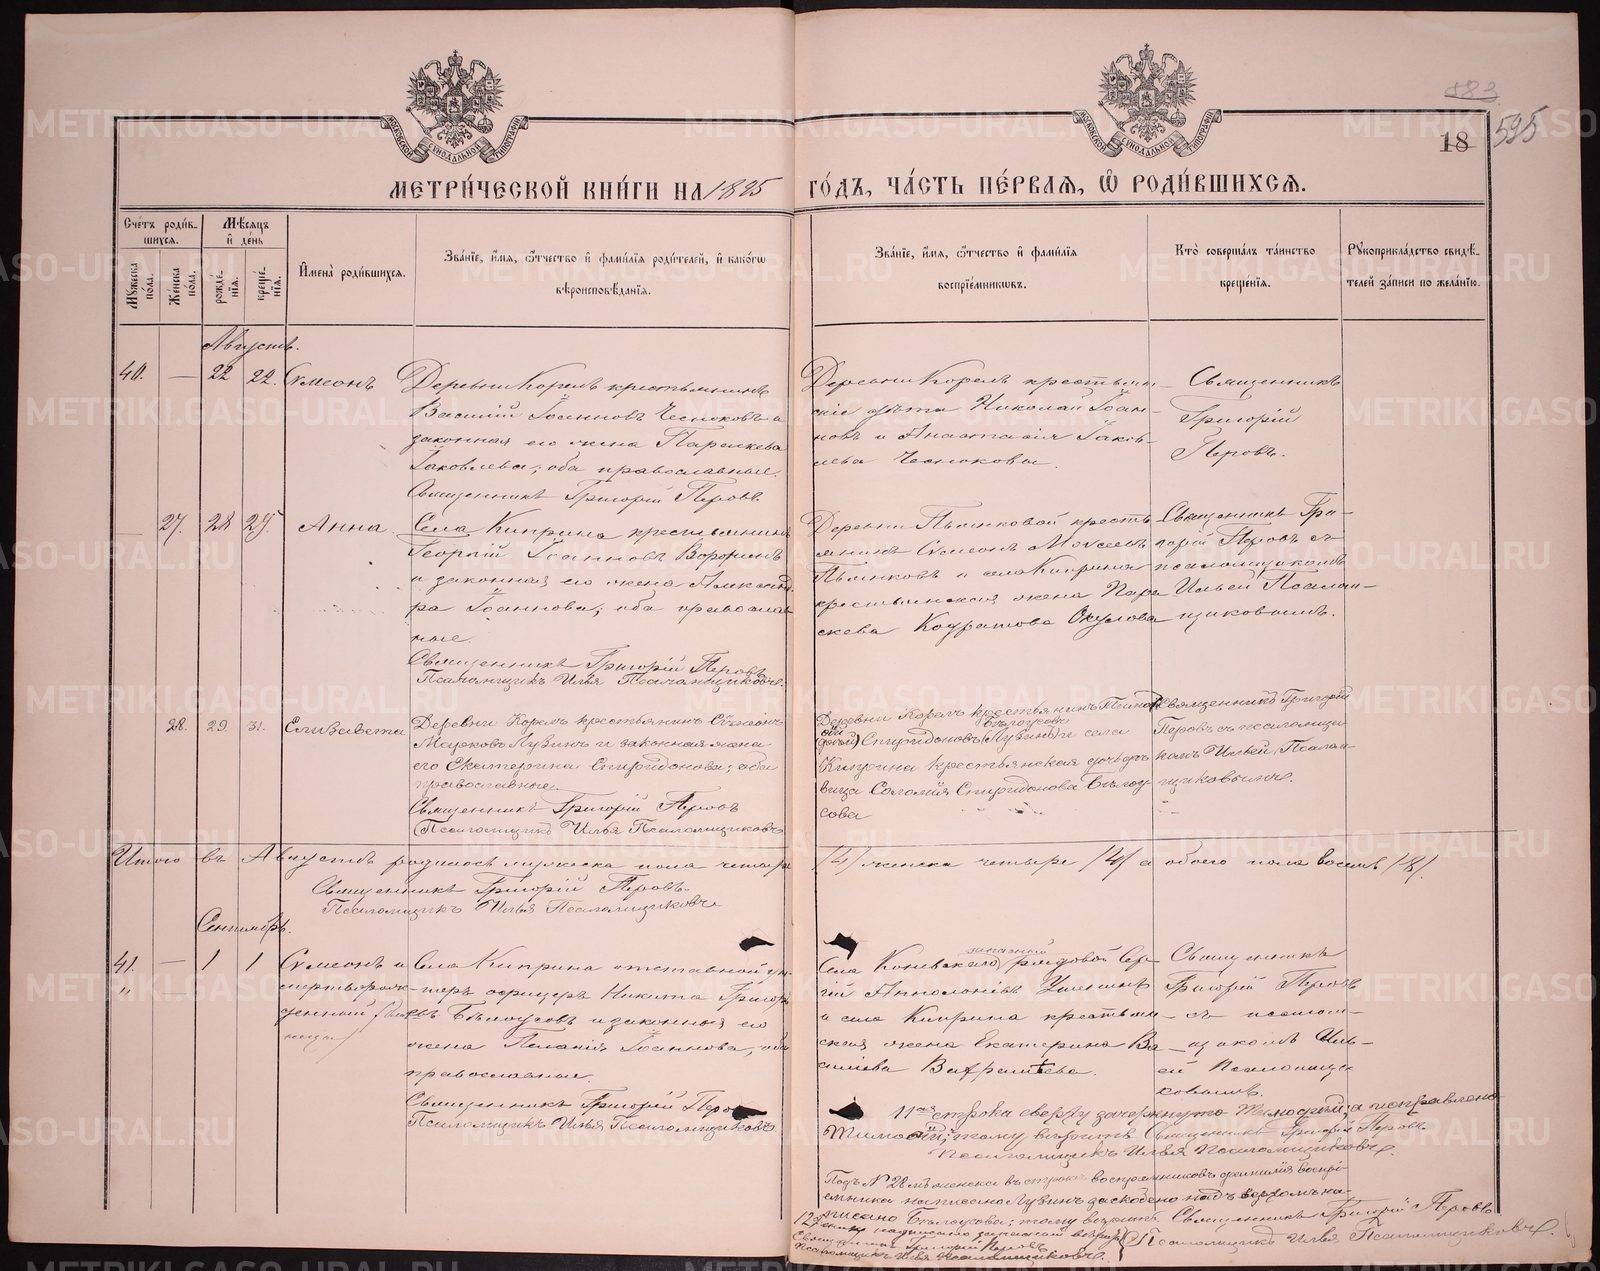 МЕТРИ́ЧЕСКОЙ КНИ́ГИ НА 1895 ГО́ДЪ, ЧА́СТЬ ПЕ́РВАЯ, Ѡ҆ РОДИ́ВШИХСЯ.
18
595
Сче́тъ роди́в-
шихся.
Мꙋ́жеска пола.
Же́нска пола.
Мѣ́сяцъ и҆ де́нь
рожде́-
нїя.
креще́-
нїя.
И҆мена̀ роди́вшихся.
Зва́нїе, и҆́мя, ѻ҆́тчество и҆ фами́лїя роди́телей, и҆ како́гѡ
вѣроисповѣ́данїя.
Зва́нїе, и҆́мя, ѻ҆́тчество и҆ фами́лїя
воспрїе́мникѡвъ.
Кто̀ соверша́лъ та́инство
креще́нїя.
Рꙋкоприкла́дство свидѣ́-
телей за́писи по жела́нїю.
Августъ.
40. — 22 22. Сѵмеонъ
Деревни Корелъ крестьянинъ
Василій Іоанновъ Чесноковъ и
законная его жена Параскева
Іаковлева; оба православные.
Священникъ Григорій Перовъ.
Деревни Корелъ крестьян-
скіе дѣти Николай Іоан-
новъ и Анастасія Іаков-
лева Чесноковы.
Священникъ
Григорій
Перовъ.
— 27. 28 29. Анна.
Села Киприна крестьянинъ
Георгій Іоанновъ Воронинъ
и законная его жена Александ-
ра Іоаннова; оба православ-
ные.
Священникъ Григорій Перовъ
Псаломщикъ Илья Псаломщиковъ.
Деревни Пьянковой кресть-
янинъ Сѵмеонъ Моѵсеевъ
Пьянковъ и села Киприна
крестьянская жена Пара-
скева Кодратова Окулова
Священникъ Гри-
горій Перовъ съ
псаломщикомъ
Ильей Псалом-
щиковымъ.
28. 29. 31. Елизавета
Деревни Корелъ крестьянинъ Сѵмеонъ
Марковъ Лузинъ и законная жена
его Екатерина Спиридонова; оба
православные.
Священникъ Григорій Перовъ
Псаломщикъ Илья Псаломщиковъ
Деревни Корелъ крестьянинъ
Бѣлоусовъ
Спиридоновъ (Лузинъ) и села
Киприна крестьянская дочь дѣ-
вица Соломія Спиридонова Бѣлоу-
сова
Священникъ Григорій
Перовъ съ псаломщи-
комъ Ильей Псалом-
щиковымъ.
Итого въ Августѣ родилось мужеска пола четыре /4/ женска четыре /4/ а обоего пола восемь /8/.
Священникъ Григорій Перовъ.
Псаломщикъ Илья Псаломщиковъ
Сентябрь.
41. — 1 1 Сѵмеонъ и
" мертворож-
денный
Села Киприна отставной ун-
теръ офицеръ Никита Григорь-
евъ Бѣлоусовъ и законная его
жена Пелагія Іоаннова; оба
православные.
Священникъ Григорій Перовъ
Псаломщикъ Илья Псаломщиковъ
запасный
Села Коневскаго рядовой Сер-
гій Апполоніевъ
и села Киприна крестьян-
ская жена Екатерина Ва-
сильева
Священникъ
Григорій Перовъ
съ псалом-
щикомъ Иль-
ей Псаломщи-
ковымъ.
11ая строка сверху зачеркнуто Тимофей, а поправлено
тому вѣрить Священникъ Григорій Перовъ
Псаломщикъ Илья Псаломщиковъ.
Подъ № 28мъ женска въ строкѣ воспріемниковъ фамилія воспрі-
емника написано Лузинъ заскоблено надъ верхомъ на-
писано Бѣлоусовъ; тому вѣрить. Священникъ Григорій Перовъ
Псаломщикъ Илья Псаломщиковъ.
Священникъ Григорій Перовъ
Псаломщикъ Илья Псаломщиковъ.
METRIKI.GASO-URAL.RU